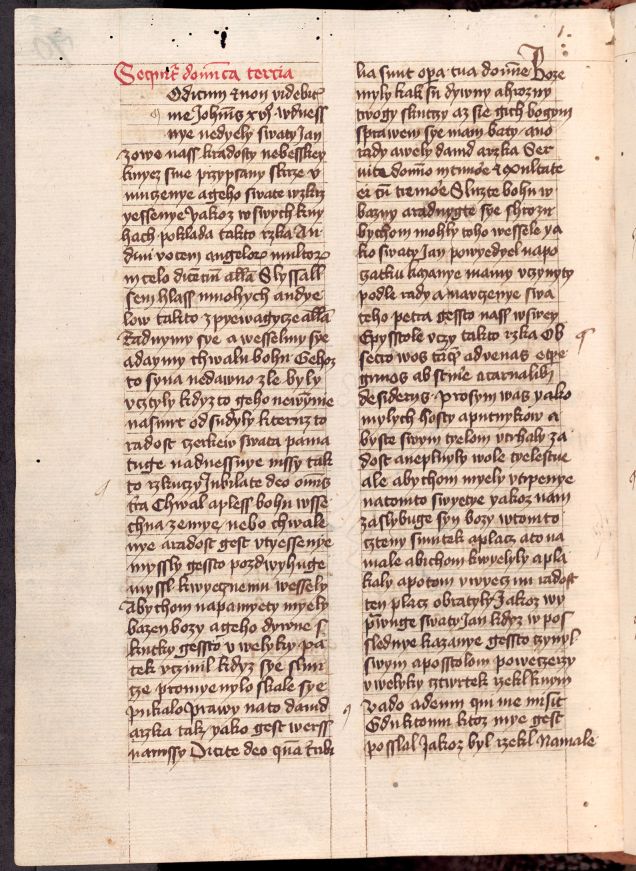 Sequitur dominica tercia
Odicum et non videbitis
me Johannis xvi wdness
nye nedyely swaty Jan
zowe nass kradosty nebesskey
kneyz sme przypsany skrze v
muczenye ageho swate wzkrz
yessenye Jakoz wswych kny
hach poklada takto rzka Au
diui vocem angelorum multorum
in celo dicentium alleluia Slyssall
sem hlass mnohych andye
low takto zpyewagycze alleluia
Radnymy sye a wesselmy sye
adaymy chwalu bohu Gehoz
to syna nedawno zle byly
vcztyly kdyz to geho newynne
nasmrt odsudyly kteruz to
radost czerkew swata pama
tuge nadnessnye mssy tak
to rzkuczy Jubilate deo omnis
terra Chwal apless bohu wsse
chna zemye nebo chwale
nye aradost gest vtyessenye
myssly gessto pozdwyhuge
myssl kwyecznemu wessely
Abychom napamyety myely
bazen bozy ageho dywne s
kutky gessto v welyky pa
tek vczinil kdyz sye slun
cze promyenylo skale sye
pukalo Prawy nato dauid
arzka tak yako gest werss
namssy Dicite deo quam terribi
lia sunt opera tua domine Boze
myly kak su dywny ahrozny
twogy skutczy az sie gich bogym
sprawem sye mam baty ano
rady awely dauid arzka Ser
uite domino in timore et exultate
ei cum tremore Sluzte bohu w
bazny aradugte sye shrozu
bychom mohly toho wessele ya
ko swaty Jan powyedyel napo
czatku kazanye mamy vczynyty
podle rady a nauczenye swa
teho petra gessto nass wswey
Epysstole vczy takto rzka Ob
secro wos tamquam advenas et pere
grinos abstinere a carnalibus
desiderijs prosym was yako
mylych hosty aputnykow a
byste swym tyelom vtrhaly za
dost aneplnyly wole tyelestne
ale abychom myely vtrpenye
natomto swyetye yakoz nam
zaslybuge syn bozy wtomto
czteny smutek aplacz ato na
male abichom kwyelyly apla
kaly apotom vwyecznu radost
ten placz obratyly Jakoz wy
prawuge swaty Jan kdyz w pos
slednye kazanye gessto czynyl
swym aposstolom poweczerzy
vwelyky cztwrtek rzekl knym
Vado ad eum qui me misit
Gdu ktomu ktoz mye gest
posslal Jakoz byl rzekl Namale